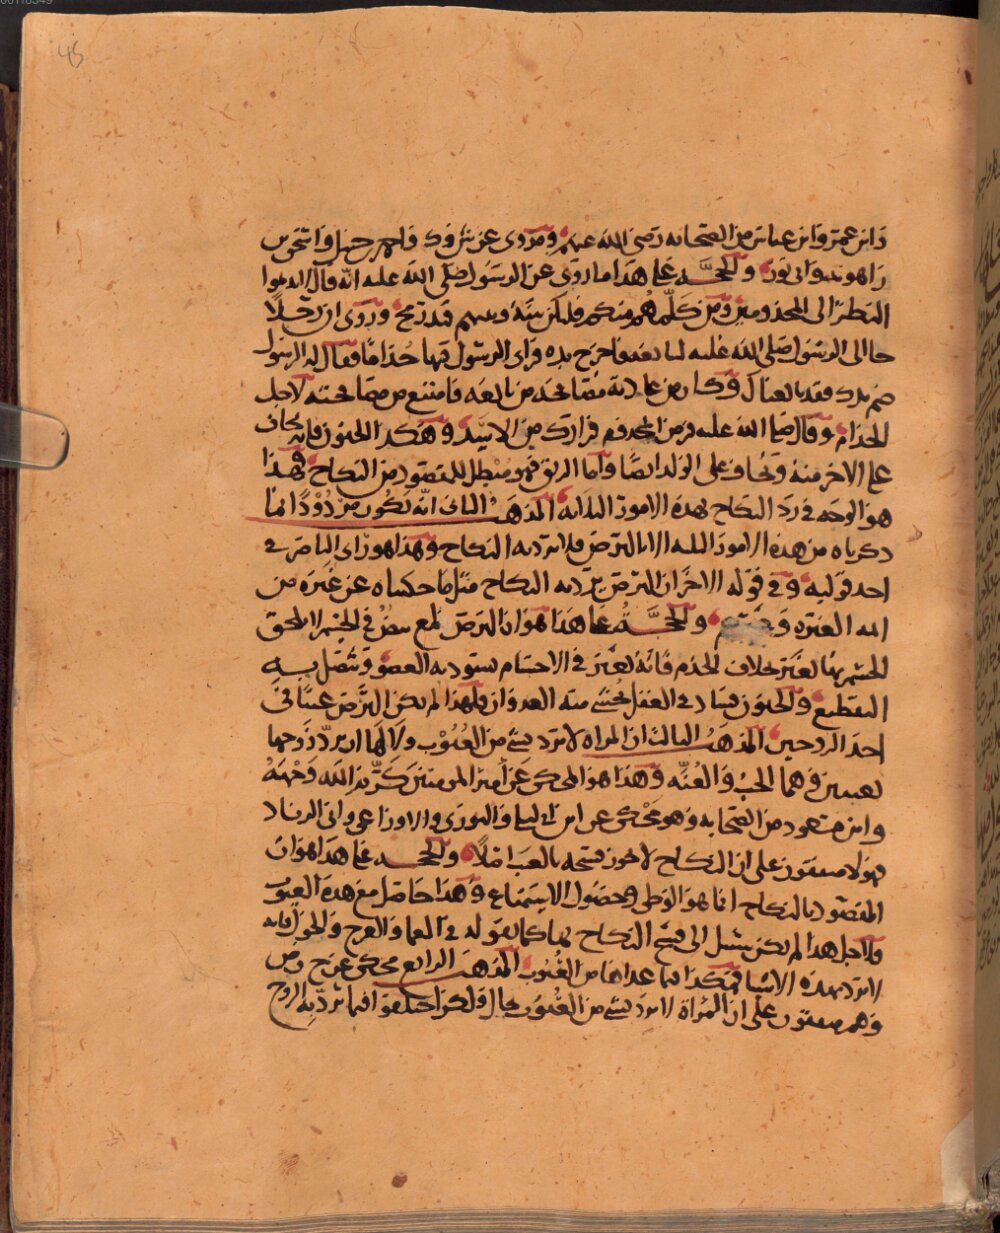 وابن عمر وابن عباس من الصحابه رضي الله عنهم ومروي عن ش وك واحمد حنبل واسحق بن
راهويه وابي ثور والحجه على هذا ما روي عن الرسول صلى الله عليه انه قال لا تديموا
النظر الى المجذومين ومن كلمهم منكم فليكن بينه وبينهم قدر رمح وروي ان رجلا
جا الى الرسول صلى الله عليه ليبايعه فاخرج يده فراى الرسول فيها جذاما فقال له الرسول
ضم يدك فقد بايعناك وكان من عادته مصافحه من بايعه فامتنع من مصافحته لاجل
الجذام وقال صلى الله عليه فر من المجذوم فرارك من الاسد وهكذا الجنون فانه يخاف
على الاخر منه ويخاف على الولد ايضا واما الرتق فهو مبطل للمقصود من النكاح فهذا
هو الوجه في رد النكاح بهذه الامور الثلاثه المذهب الثاني انه يكون مردودا بما
ذكرناه من هذه الامور الثلثه الا البرص فلا يرد به النكاح وهذا هو راي الناصر في
احد قوليه وفي قوله الاخر ان البرص يرد به النكاح مثل ما حكيناه عن غيره من
ايمه العتره والحجه على هذا هو ان البرص لمع بيض في الجسم لا يلحق
الجسم بها تغير بخلاف الجذم فانه تغير في الاجسام يسود به العضو ويتصل به
التقطيع والجنون فساد في العقل يخشى منه العدوان فلهذا لم يكن البرص عيبا في
احد الزوجين المذهب الثالث ان المراه لا ترد بشي من العيوب ولا لها ان ترد زوجها
بعيبين وهما الجب والعنه وهذا هو المحكي عن امير المومنين كرم الله وجهه
وابن مسعود من الصحابه وهو محكي عن ابن ابي ليلى والثوري والاوزاعي وابي الزناد
فهولا متفقون على ان النكاح لا يجوز فسخه بالعيب اصلا والحجه على هذا هو ان
المقصود بالنكاح انما هو الوطي وحصول الاستمتاع وهذا حاصل مع هذه العيوب
فلاجل هذا لم يكن سبيل الى فسخ النكاح بها كما نقوله في العمى والعرج والحول فانه
لا ترد بهذه الاشيا فهكذا بما عداها من العيوب المذهب الرابع محكي عن ح وص
وهم متفقون على ان المراة لا ترد بشي من العيوب بحال ولكن اختلفوا فيما ترد به الزوج